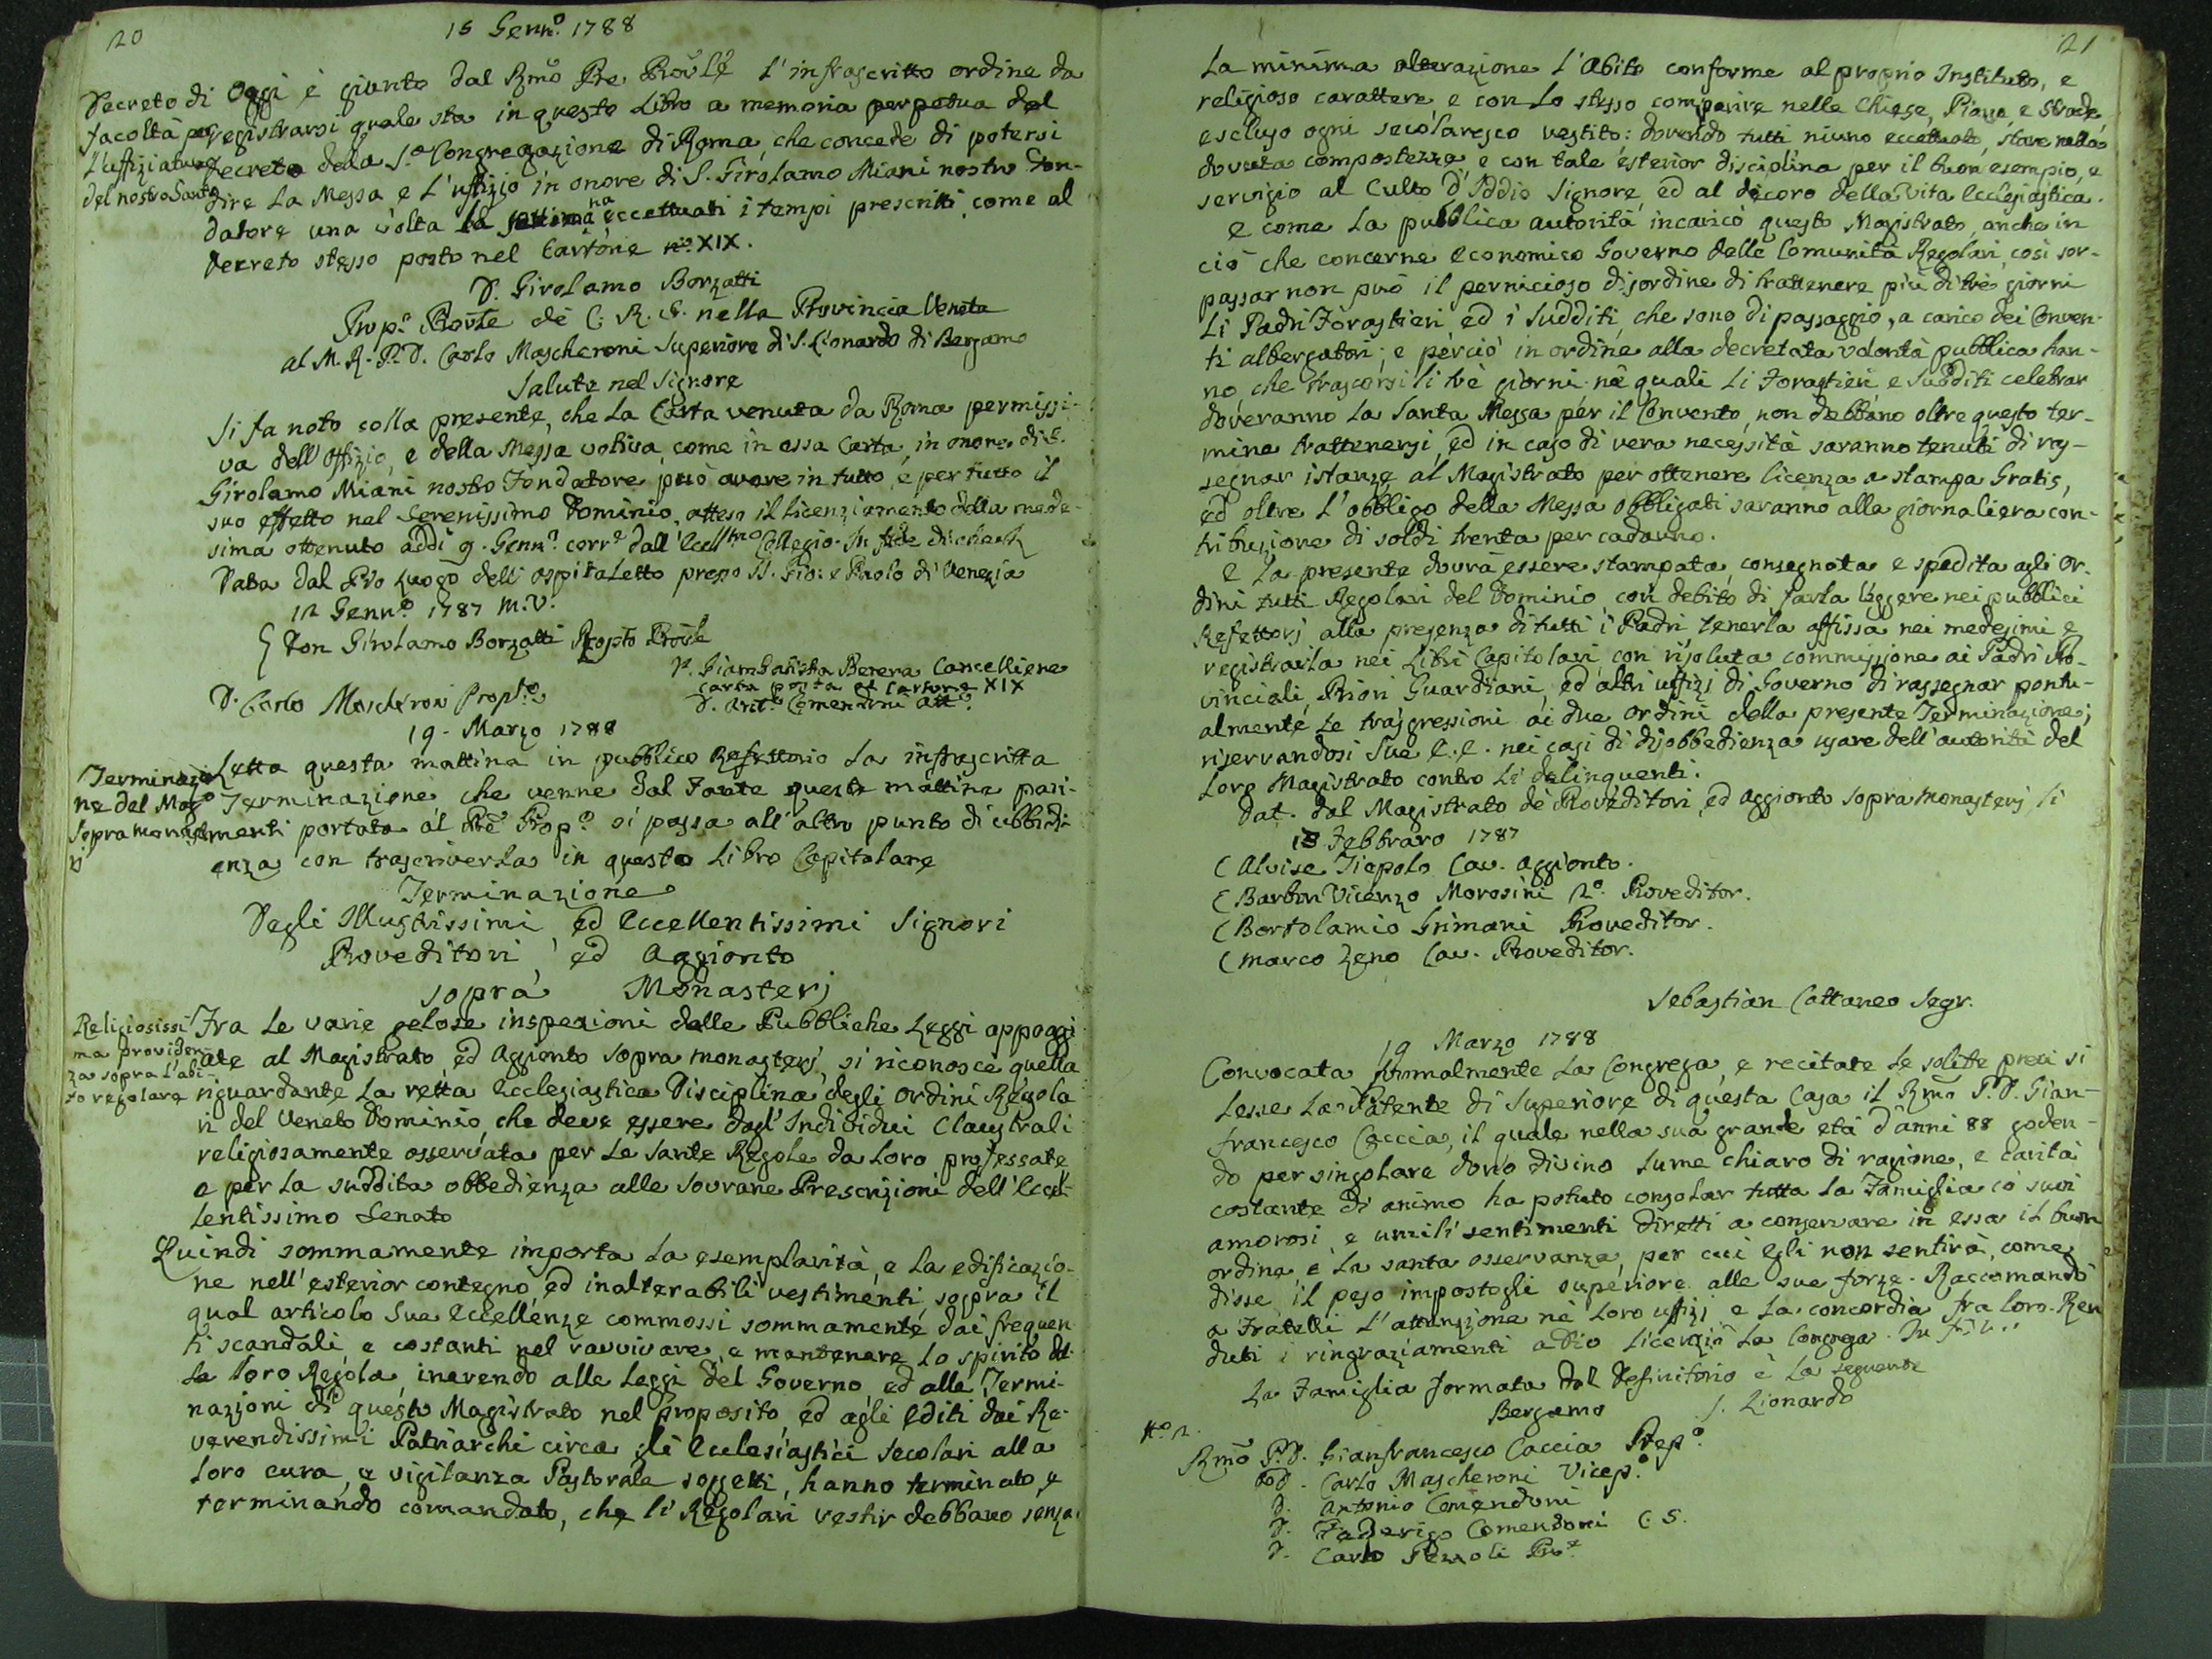 20
15 Genn.o 1788
Decreto di
facoltà per
l'uffiziatura
del nostro Santo
Oggi è giunto dal Rmo Pre Provle l'infrascritto ordine da
registrarsi quale sta in questo Libro a memoria perpetua del
Decreto della S.a Congregazione di Roma, che concede di potersi
dire la Messa e l'uffizio in onore di S. Girolamo Miani nostro Fon-
datore una volta la settimana eccettuati i tempi prescritti, come al
Decreto stesso posto nel Cartone n.o XIX.
D. Girolamo Borzatti
Prop.o Provle de C. R. S. nella Provincia Veneta
al M. R. P. D. Carlo Mascheroni Superiore di S. Lionardo di Bergamo
Salute nel Signore
Si fa noto colla presente, che la Carta venuta da Roma permissi-
va dell'Offizio, e della Messa votiva, come in essa Carta, in onore di S.
Girolamo Miani nostro Fondatore può avere in tutto, e per tutto il
suo effetto nel Serenissimo Dominio, atteso il licenziamento della mede-
sima ottenuto addì 9. Genn.o corr.e dall'Eccllmo Collegio. In fede di che
Data dal Pio Luogo dell'ospitaletto presso SS. Gio: e Paolo di Venezia
12 Genn.o 1787 M.V.
Don Girolamo Borzatti Propto Provle
D. Giambatista Berera Cancelliere
carta posta al Cartone XIX
D. Carlo Mascheroni Prop.to
D. Ant.o Comendoni Att.o
19. Marzo 1788
Terminazio
ne del Mag.o
Sopra monaste
rj
Letta questa mattina in pubblico Refettorio la infrascritta
Terminazione, che venne dal Fante questa mattina pari-
menti portata al Pre Prop.o si passa all'altro punto di ubbidi-
enza con trascriverla in questo Libro Capitolare
Terminazione
Degli Illustrissimi, ed Eccellentissimi Signori
Proveditori, ed Aggionto
sopra Monasterj
Religiosissi
ma providen-
za sopra l'abi-
to regolare
Fra le varie gelose inspezioni delle Pubbliche Leggi appoggi
ate al Magistrato, ed Aggionto sopra monasterj, si riconosce quella
riguardante la retta Ecclesiastica Disciplina degli Ordini Regola
ri del Veneto Dominio, che deve essere dagl'Individui Claustrali
religiosamente osservata per le Sante Regole da loro professate,
e per la suddita obbedienza alle Sovrane Prescrizioni dell'Eccel-
lentissimo Senato
Quindi sommamente importa la esemplarità, e la edificazio-
ne nell'esterior contegno, ed inalterabili vestimenti, sopra il
qual articolo Sue Eccellenze commossi sommamente dai frequen
ti scandali, e costanti nel ravvivare, e mantenere lo spirito del-
la loro Regola, inerendo alle Leggi del Governo, ed alle Termi-
nazioni di questo Magistrato nel proposito, ed agli Editi dei Re-
verendissimi Patriarchi circa gli Eclesiastici Secolari alla
loro cura, e vigilanza Pastorale soggetti, hanno terminato, e
terminando comandato, che li Regolari vestir debbano senza
21
la minima alterazione l'Abito conforme al proprio Instituto, e
religioso carattere, e con lo stesso comparire nelle Chiese, Piazze, e Strade,
escluso ogni secolaresco vestito: dovendo tutti niuno eccettuato, stare nella
dovuta compostezza, e con tale esterior disciplina per il buon esempio, e
servigio al Culto d'Iddio Signore, ed al decoro della Vita Ecclesiastica.
E come la pubblica autorità incaricò questo Magistrato, anche in
ciò che concerne economico Governo delle Comunità Regolari, così sor-
passar non può il pernicioso disordine di trattenere più di trè giorni
li Padri Forastieri, ed i Sudditi, che sono di passaggio, a carico dei Conven-
ti albergatori; e perciò in ordine alla decretata volontà pubblica han-
no, che trascorsi li trè giorni nè quali li Forastieri, e Sudditi celebrar
doveranno la Santa Messa per il Convento, non debbano oltre questo ter-
mine trattenersi, ed in caso di vera necessità saranno tenuti di ras-
segnar istanze al Magistrato per ottenere licenza a stampa Gratis,
ed oltre l'obbligo della Messa obbligati saranno alla giornaliera con-
tribuzione di soldi trenta per cadauno.
E la presente dovrà essere stampata, consegnata e spedita agli Or-
dini tutti Regolari del Dominio con debito di farla leggere nei pubblici
Refettorj alla presenza di tutti i Padri, tenerla affissa nei medesimi e
registrarla nei Libri Capitolari, con risoluta commissione ai Padri Pro-
vinciali, Priori, Guardiani, ed altri uffizj di Governo di rassegnar pontu-
almente le trasgressioni ai due ordini della presente Terminazione;
riservandosi Sue E.E. nei casi di disobbedienza usare dell'autorità del
Loro Magistrato contro li delinquenti.
Dat. dal Magistrato de Proveditori, ed Aggionto sopra Monasterj li
13 Febbraro 1787
(Alvise Tiepolo Cav. Aggionto.
(Barbon Vicenzo Morosini 2.o Proveditor.
(Bortolamio Grimani Proveditor.
(Marco Zeno Cav. Proveditor.
Sebastian Cattaneo Segr.
19 Marzo 1788
Convocata formalmente la Congrega, e recitate le solite preci si
lesse la Patente di Superiore di questa Casa il Rmo P. D. Gian-
francesco Caccia, il quale nella sua grande età d'anni 88 goden-
do per singolare dono divino lume chiaro di ragione, e carità
costante di animo ha potuto consolar tutta la Famiglia cò suoi
amorosi, e umili sentimenti diretti a conservare in essa il buon
ordine, e la santa osservanza, per cui egli non sentirà, come
disse, il peso impostogli superiore alle sue forze. Raccomandò
a Fratelli l'attenzione nè loro uffizj e la concordia fra loro. Ren
duti i ringraziamenti a Dio licenziò la Congrega. In fede
La Famiglia formata dal Definitorio è la seguente
Bergamo S. Lionardo
N.o 2.
Rmo P. D. Gianfrancesco Caccia Prep.o
D. Carlo Mascheroni Vicep.o
D. Antonio Comendoni
D. Federigo Comendoni C S.
D. Carlo